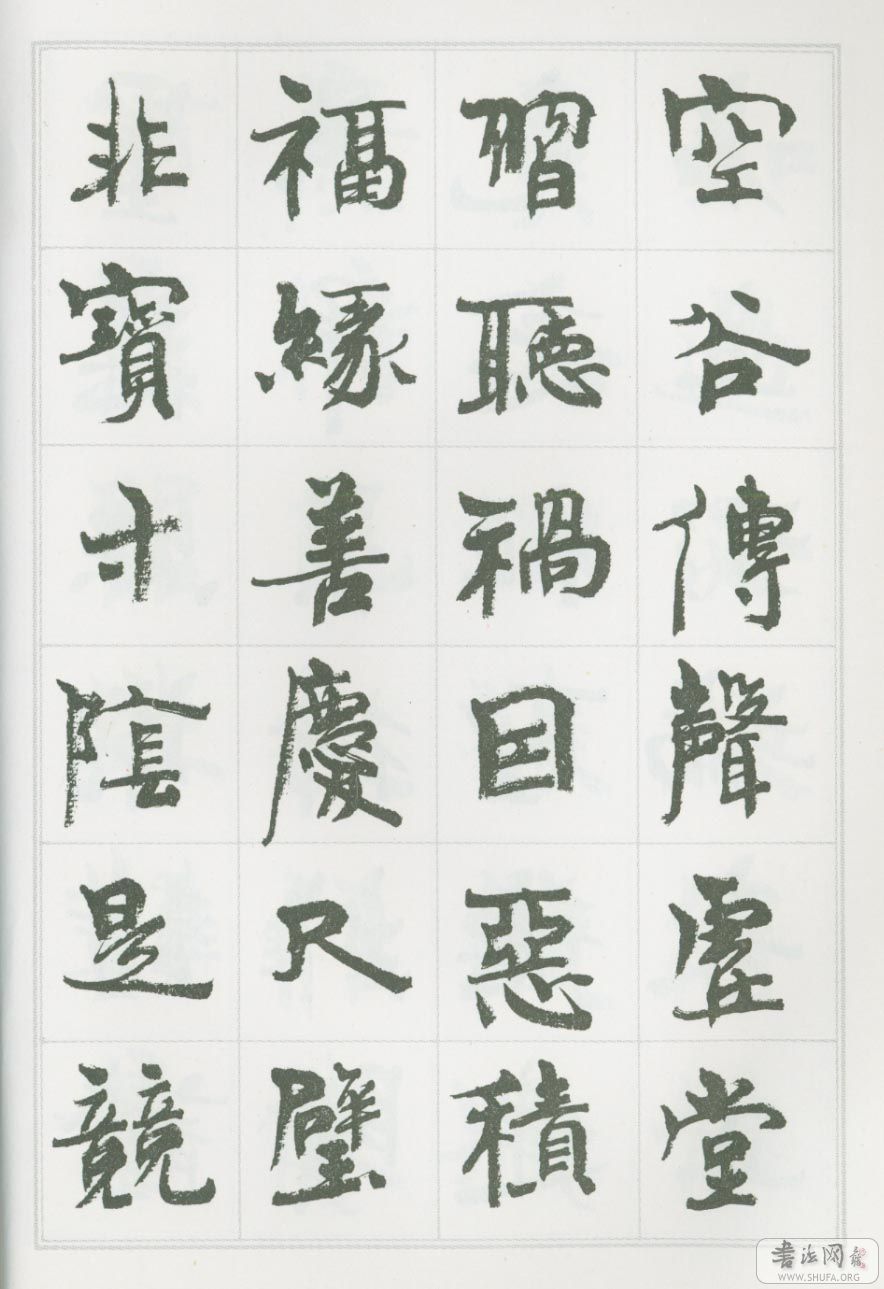 空谷傳聲虛堂
習聽禍因惡積
福緣善慶尺璧
非寶寸陰是競
書法网
WWW.SHUFA.ORG